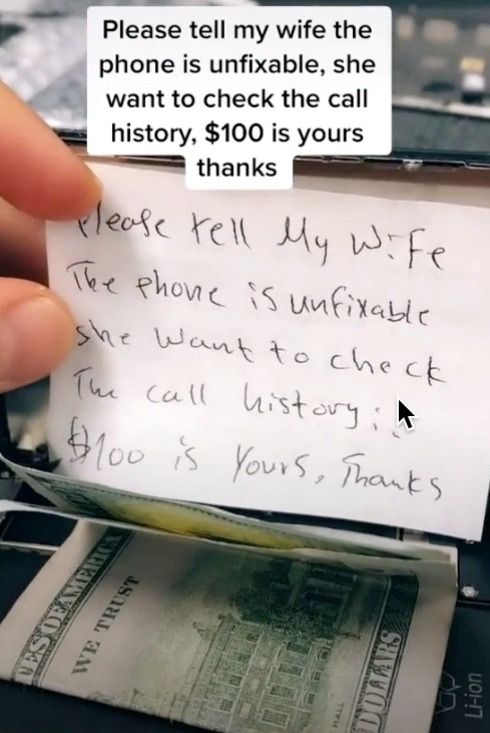 Please tell my wife the
phone is unfixable, she
want to check the call
history, $100 is yours
thanks
Please tell My Wife
The phone is unfixable
she want to check
The call history;
$100 is Yours, Thanks
WE TRUST
HALL
DOLLARS
Li-ion